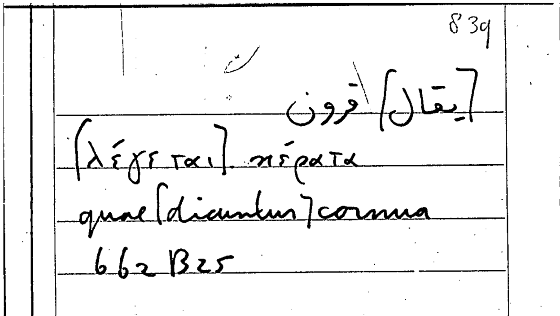 839
[يقال] قرون
[λέγεται] κέρατα
quae [dicuntur] cornua
662 B25